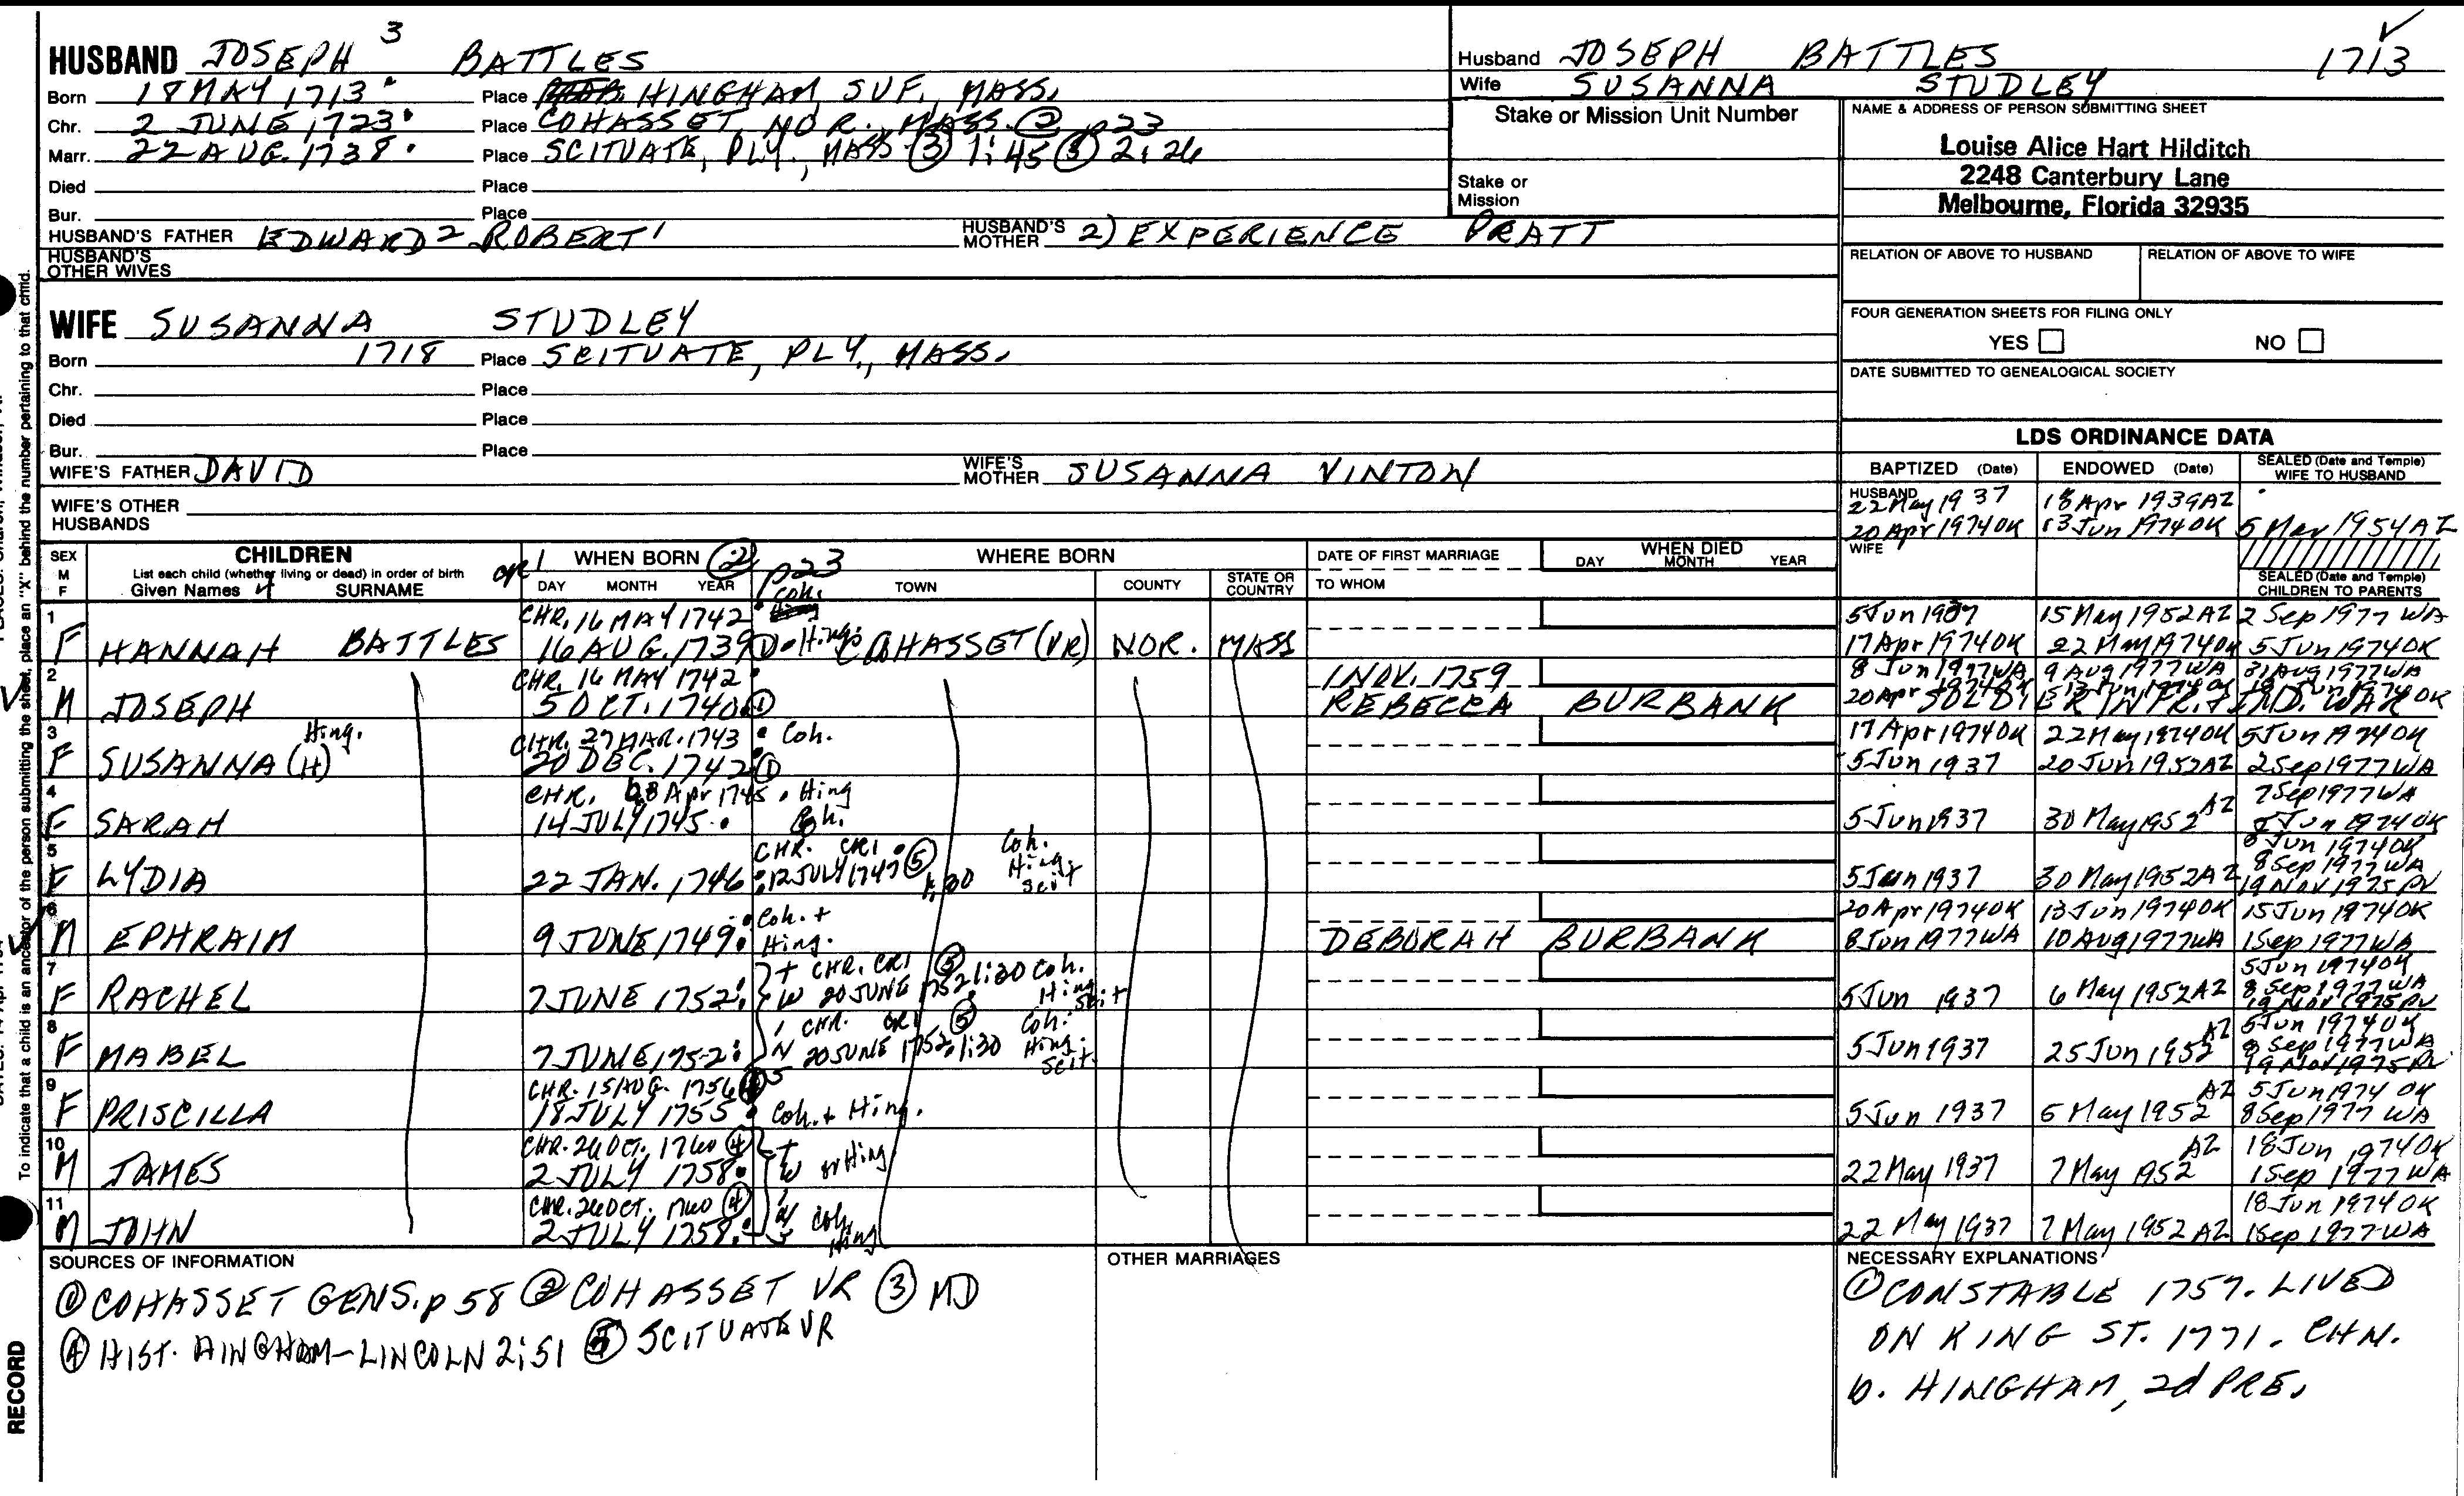 HUSBAND JOSEPH 3 BATTLES
Born 18 MAY 1713 Place HINGHAM, SUF., MASS.
Chr. 2 JUNE 1723 Place COHASSET NOR. MASS. ② p23
Marr. 22 AUG. 1738 Place SCITUATE, PLY., MASS ③ 1:45 ⑤ 2:26
Died Place
Bur. Place
HUSBAND'S FATHER EDWARD 2 ROBERT 1 HUSBAND'S MOTHER 2) EXPERIENCE PRATT
HUSBAND'S OTHER WIVES
WIFE SUSANNA STUDLEY
Born 1718 Place SCITUATE, PLY., MASS.
Chr. Place
Died Place
Bur. Place
WIFE'S FATHER DAVID WIFE'S MOTHER SUSANNA VINTON
WIFE'S OTHER HUSBANDS
Husband JOSEPH BATTLES 1713
Wife SUSANNA STUDLEY
Stake or Mission Unit Number
Stake or
Mission
NAME & ADDRESS OF PERSON SUBMITTING SHEET
Louise Alice Hart Hilditch
2248 Canterbury Lane
Melbourne, Florida 32935
RELATION OF ABOVE TO HUSBAND RELATION OF ABOVE TO WIFE
FOUR GENERATION SHEETS FOR FILING ONLY
YES NO
DATE SUBMITTED TO GENEALOGICAL SOCIETY
LDS ORDINANCE DATA
BAPTIZED (Date) ENDOWED (Date) SEALED (Date and Temple) WIFE TO HUSBAND
HUSBAND
22 May 1937 18 Apr 1939 AZ
20 Apr 1974 OK 13 Jun 1974 OK 5 Mar 1954 AZ
WIFE
SEALED (Date and Temple)
CHILDREN TO PARENTS
SEX M F CHILDREN WHEN BORN ② p23 WHERE BORN DATE OF FIRST MARRIAGE WHEN DIED
List each child (whether living or dead) in order of birth
Given Names 4 SURNAME DAY MONTH YEAR TOWN COUNTY STATE OR COUNTRY TO WHOM DAY MONTH YEAR
1 CHR. 16 MAY 1742 Coh. 5 Jun 1937 15 May 1952 AZ 2 Sep 1977 WA
F HANNAH BATTLES 16 AUG. 1739 ① Hing: COHASSET (VR) NOR. MASS 17 Apr 1974 OK 22 May 1974 OK 5 Jun 1974 OK
2 CHR. 16 MAY 1742 1 NOV. 1759 8 Jun 1977 WA 9 Aug 1977 WA 31 Aug 1977 WA
M JOSEPH 5 OCT. 1740 ① REBECCA BURBANK 20 Apr SOLDIER IN FR. & IND. WAR
3 Hing. CHR. 27 MAR. 1743 Coh. 17 Apr 1974 OK 22 May 1974 OK 5 Jun 1974 OK
F SUSANNA (H) 20 DEC. 1742 ① 5 Jun 1937 20 Jun 1952 AZ 2 Sep 1977 WA
4 CHR. 28 Apr 1745 Hing 7 Sep 1977 WA
F SARAH 14 JULY 1745 Coh. 5 Jun 1937 30 May 1952 AZ Jun 1974 OK
5 CHR. CR1 ⑤ Coh. 8 Jun 1974 OK
F LYDIA 22 JAN. 1746 12 JULY 1747 1:30 Hing: Scit 5 Jun 1937 30 May 1952 AZ 8 Sep 1977 WA 19 Nov 1975 PV
6 Coh. + 20 Apr 1974 OK 13 Jun 1974 OK 15 Jun 1974 OK
M EPHRAIM 9 JUNE 1749 Hing. DEBORAH BURBANK 8 Jun 1977 WA 10 Aug 1977 WA 1 Sep 1977 WA
7 T CHR. CR1 ⑤ 5 Jun 1974 OK
F RACHEL 7 JUNE 1752 W 20 JUNE 1752 1:30 Coh. Hing Scit 5 Jun 1937 6 May 1952 AZ 8 Sep 1977 WA 19 Nov 1975 PV
8 I CHR. CR1 ⑤ Coh: 5 Jun 1974 OK
F MABEL 7 JUNE 1752 N 20 JUNE 1752 1:30 Hing: Scit. 5 Jun 1937 25 Jun 1952 AZ 8 Sep 1977 WA 19 Nov 1975 PV
9 CHR. 15 AUG. 1756 5 Jun 1974 OK
F PRISCILLA 18 JULY 1755 Coh. + Hing. 5 Jun 1937 6 May 1952 AZ 8 Sep 1977 WA
10 CHR. 26 OCT. 1760 ④ T 18 Jun 1974 OK
M JAMES 2 JULY 1758 W or Hing 22 May 1937 7 May 1952 AZ 1 Sep 1977 WA
11 CHR. 26 OCT. 1760 ④ 18 Jun 1974 OK
M JOHN 2 JULY 1758 Coh. Hing 22 May 1937 7 May 1952 AZ 1 Sep 1977 WA
SOURCES OF INFORMATION
① COHASSET GENS. p 58 ② COHASSET VR ③ MD
④ HIST. HINGHAM-LINCOLN 2:51 ⑤ SCITUATE VR
OTHER MARRIAGES
NECESSARY EXPLANATIONS
① CONSTABLE 1757. LIVED
ON KING ST. 1771. CHN.
b. HINGHAM, 2d PRE.
To indicate that a child is an ancestor of the person submitting the sheet, place an "X" behind the number pertaining to that child.
RECORD